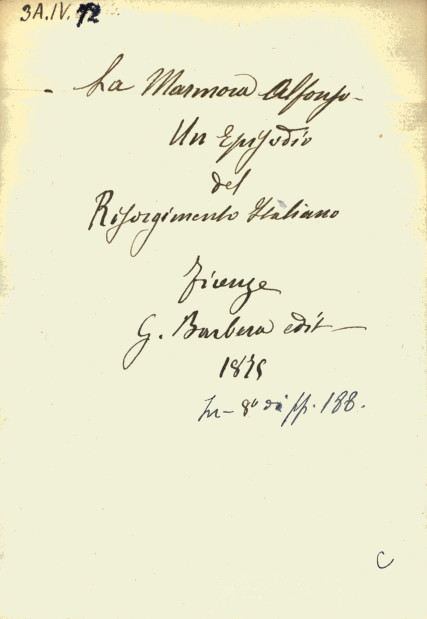 3A.IV.72
La Marmora Alfonso-
Un Episodio
del
Risorgimento Italiano
Firenze
G. Barbera edit
1875
In-8° di pp. 188.
C